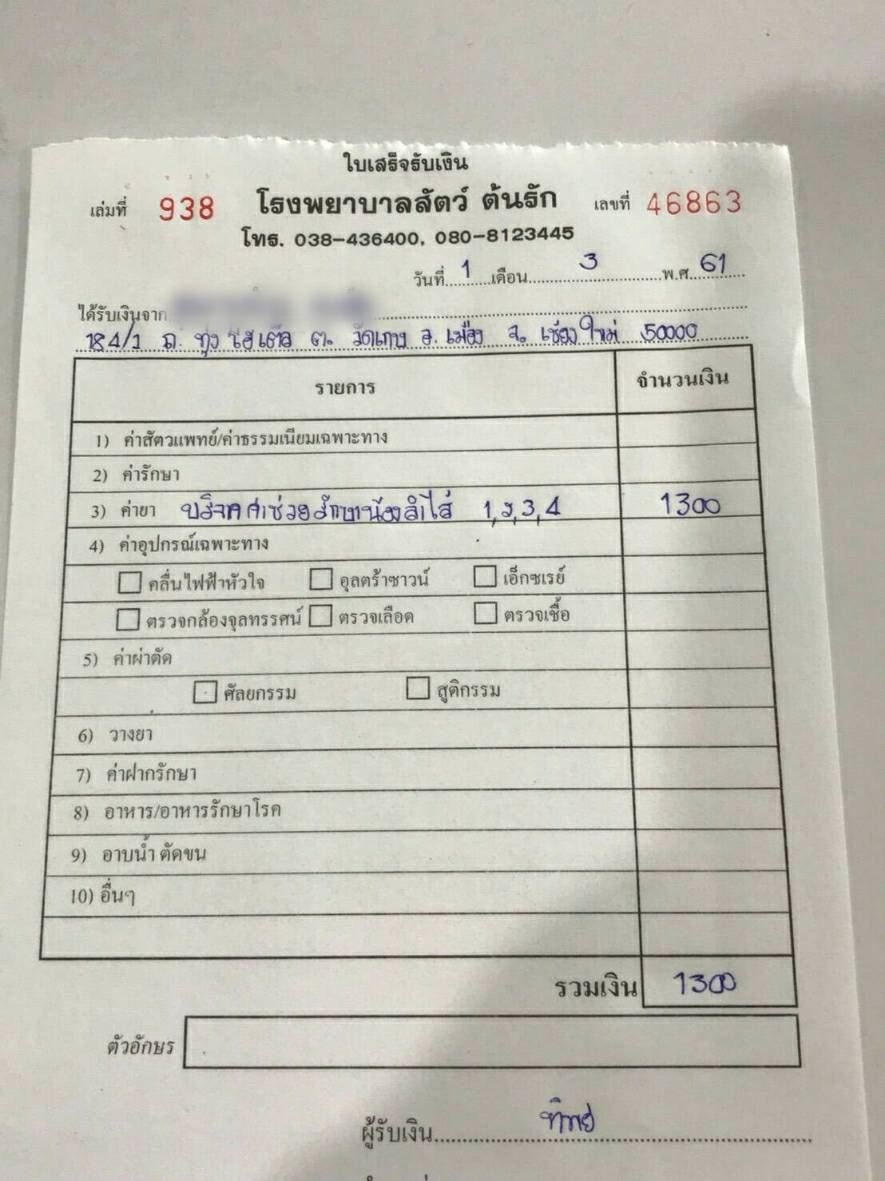 ใบเสร็จรับเงิน
เล่มที่ 938 โรงพยาบาลสัตว์ ต้นรัก เลขที่ 46863
โทร. 038-436400, 080-8123445
วันที่ 1 เดือน 3 พ.ศ. 61
ได้รับเงินจาก
184/1 ถ. ทุ่งโฮเต็ล ต. วัดเกต อ. เมือง จ. เชียงใหม่ 50000
รายการ จำนวนเงิน
1) ค่าสัตวแพทย์/ค่าธรรมเนียมเฉพาะทาง
2) ค่ารักษา
3) ค่ายา บริจาคค่าช่วยรักษาน้องลำไส้ 1,2,3,4 1300
4) ค่าอุปกรณ์เฉพาะทาง
คลื่นไฟฟ้าหัวใจ อุลตร้าซาวน์ เอ็กซเรย์
ตรวจกล้องจุลทรรศน์ ตรวจเลือด ตรวจเชื้อ
5) ค่าผ่าตัด
ศัลยกรรม สูติกรรม
6) วางยา
7) ค่าฝากรักษา
8) อาหาร/อาหารรักษาโรค
9) อาบน้ำ ตัดขน
10) อื่นๆ
รวมเงิน 1300
ตัวอักษร
ผู้รับเงิน ทิพย์